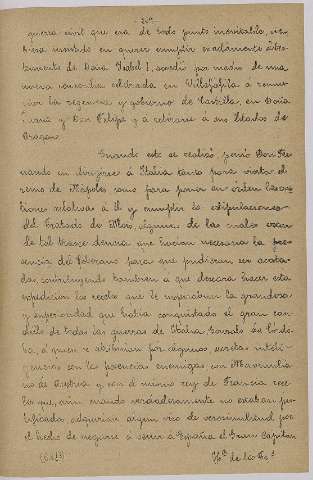 guerra civil que era de todo punto inevitable, en
vez de insistir en querer cumplir exactamente el tes-
tamento de Doña Isabel I, accedió por medio de una
nueva concordia celebrada en Villafáfila á renun-
ciar la regencia y gobierno de Castilla, en Doña
Juana y Don Felipe y a retirarse á sus Estados de
Aragón.
Cuando esto se realizó, pensó Don Fer-
nando en dirigirse á Italia tanto para visitar el
reino de Nápoles como para poner en orden las cues-
tiones relativas á él y cumplir las estipulaciones
del Tratado de Blois, algunas de las cuales eran
de tal trascendencia que hacían necesaria la pre-
sencia del Soberano para que pudieran ser acata-
das, contribuyendo también á que deseara hacer esta
expedición los recelos que le inspiraban la grandeza
y superioridad que había conquistado el gran cau-
dillo de todas las guerras de Italia Gonzalo de Córdo-
ba, a quien se atribuían por algunos secretas inteli-
gencias con las potencias enemigas con Maximilia-
no de Austria y con el mismo rey de Francia rece-
los que, aún cuando verdaderamente no estaban jus-
tificados adquirían algún viso de verosimilitud por
el hecho de negarse á venir á España el Gran Capitán